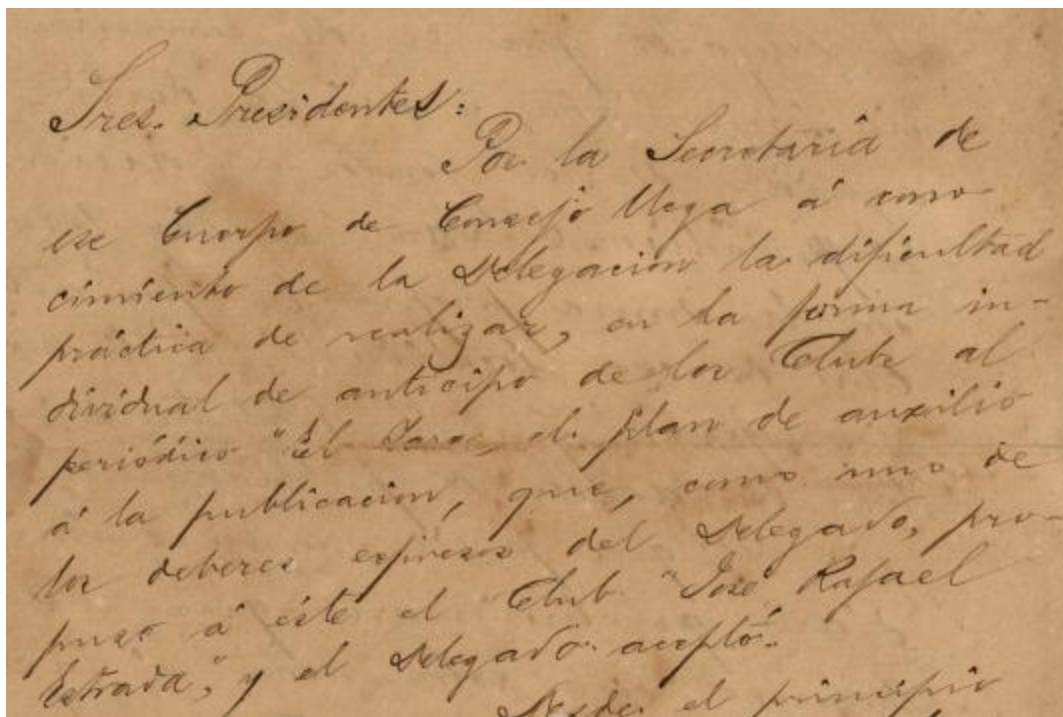 Sres. Presidentes:
Por la Secretaría de
ese Cuerpo de Consejo llega á cono-
cimiento de la Delegacion la dificultad
práctica de realizar, en la forma in-
dividual de anticipo de los Clubs al
periódico "El Yara" el plan de auxilio
á la publicacion, que, como uno de
los deberes expresos del Delegado, pro-
puso á éste el Club "José Rafael
Estrada," y el Delegado aceptó.
Desde el principio